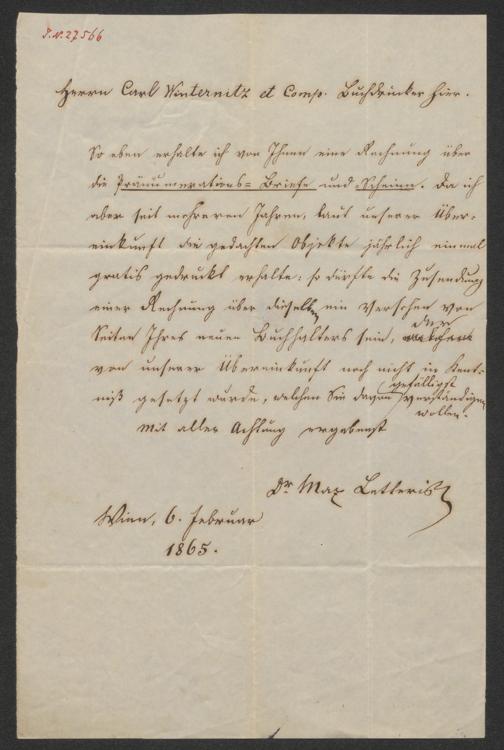 J.N. 27566
Herrn Carl Winternitz et Comp. Buchdrucker hier.
So eben erhalte ich von Ihnen eine Rechnung über
die Pränumerations= Briefe und Scheine. Da ich
aber seit mehreren Jahren, laut unserer Über-
einkunft die gedachten Objekte jährlich einmal
gratis gedruckt erhalte: so dürfte die Zusendung
einer Rechnung über dieselben ein Versehen von
Seiten Ihres neuen Buchhalters sein, der
von unserer Übereinkunft noch nicht in Kent-
niß gesetzt wurde, welchen Sie davon gefälligst verständigen
wollen.
Mit aller Achtung ergebenst
Dr Max Letteris
Wien, 6. Februar
1865.